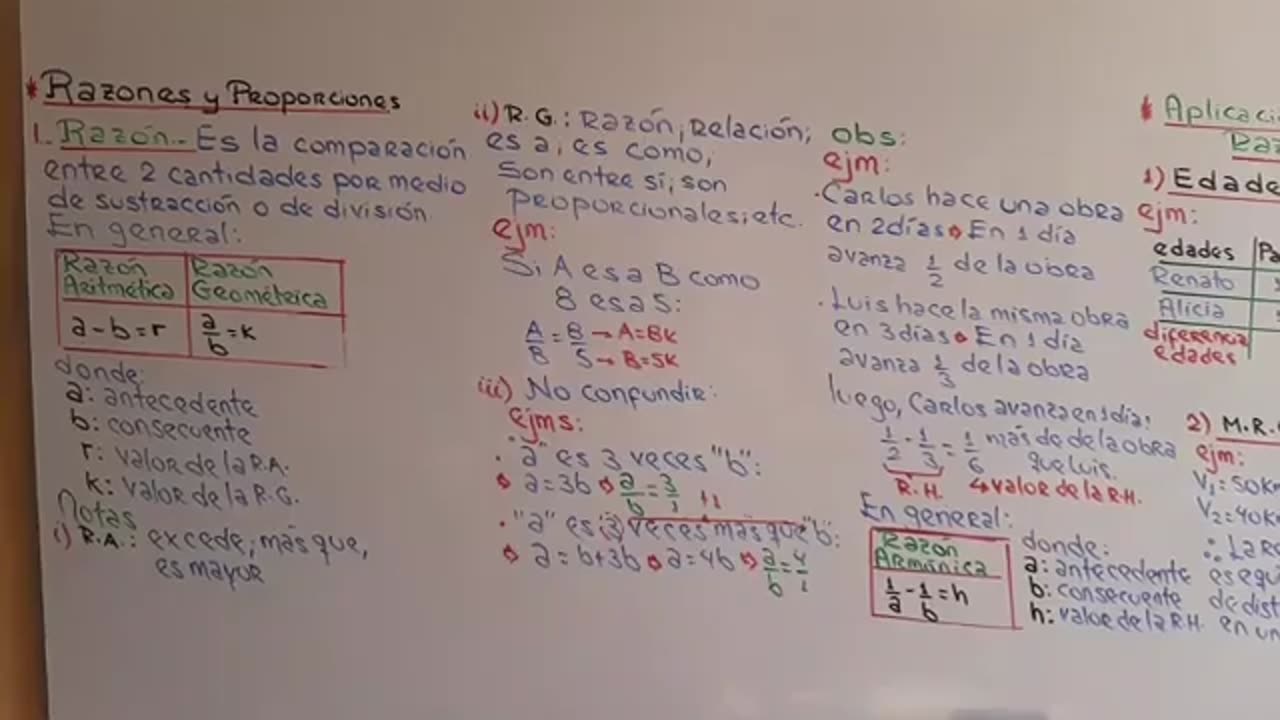 * Razones y Proporciones
1. Razón.- Es la comparación
entre 2 cantidades por medio
de sustracción o de división.
En general:
Razón Aritmética
Razón Geométrica
a-b=r
a/b=k
donde:
a: antecedente
b: consecuente
r: valor de la R.A.
k: valor de la R.G.
Notas
i) R.A.: excede; más que,
es mayor
ii) R.G.: Razón; Relación;
es a; es como;
son entre sí; son
proporcionales; etc.
ejm:
Si A es a B como
8 es a 5:
A/B = 8/5 → A=8k
→ B=5k
iii) No confundir:
ejms:
• "a" es 3 veces "b":
a=3b a/b=3/1
+1
• "a" es (3) veces más que "b:
a=b+3b a=4b a/b=4/1
obs:
ejm:
•Carlos hace una obra
en 2 días En 1 día
avanza 1/2 de la obra
•Luis hace la misma obra
en 3 días En 1 día
avanza 1/3 de la obra
luego, Carlos avanza en 1 día:
1/2 - 1/3 = 1/6 más de de la obra
que Luis.
R.H. ↳valor de la R.H.
En general:
Razón
Armónica
1/a - 1/b = h
donde:
a: antecedente
b: consecuente
h: valor de la R.H.
* Aplicaci
Raz
1) Edade
ejm:
edades Pa
Renato
Alicia
diferencia
edades
2) M.R.
ejm:
V1=50km
V2=40k
∴ La R
es equi
de dist
en un